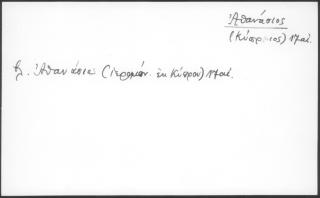 Ἀθανάσιος
(Κύπριος) 17 αἰ.
βλ. Ἀθανάσιο (Ἱερομόν. ἐκ Κύπρου) 17 αἰ.